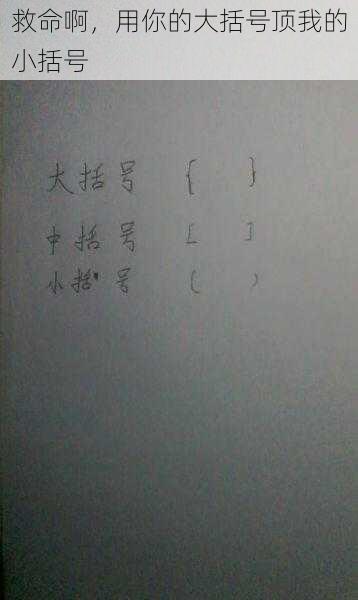 救命啊，用你的大括号顶我的
小括号
大括号 { }
中括号 [ ]
小括号 ( )